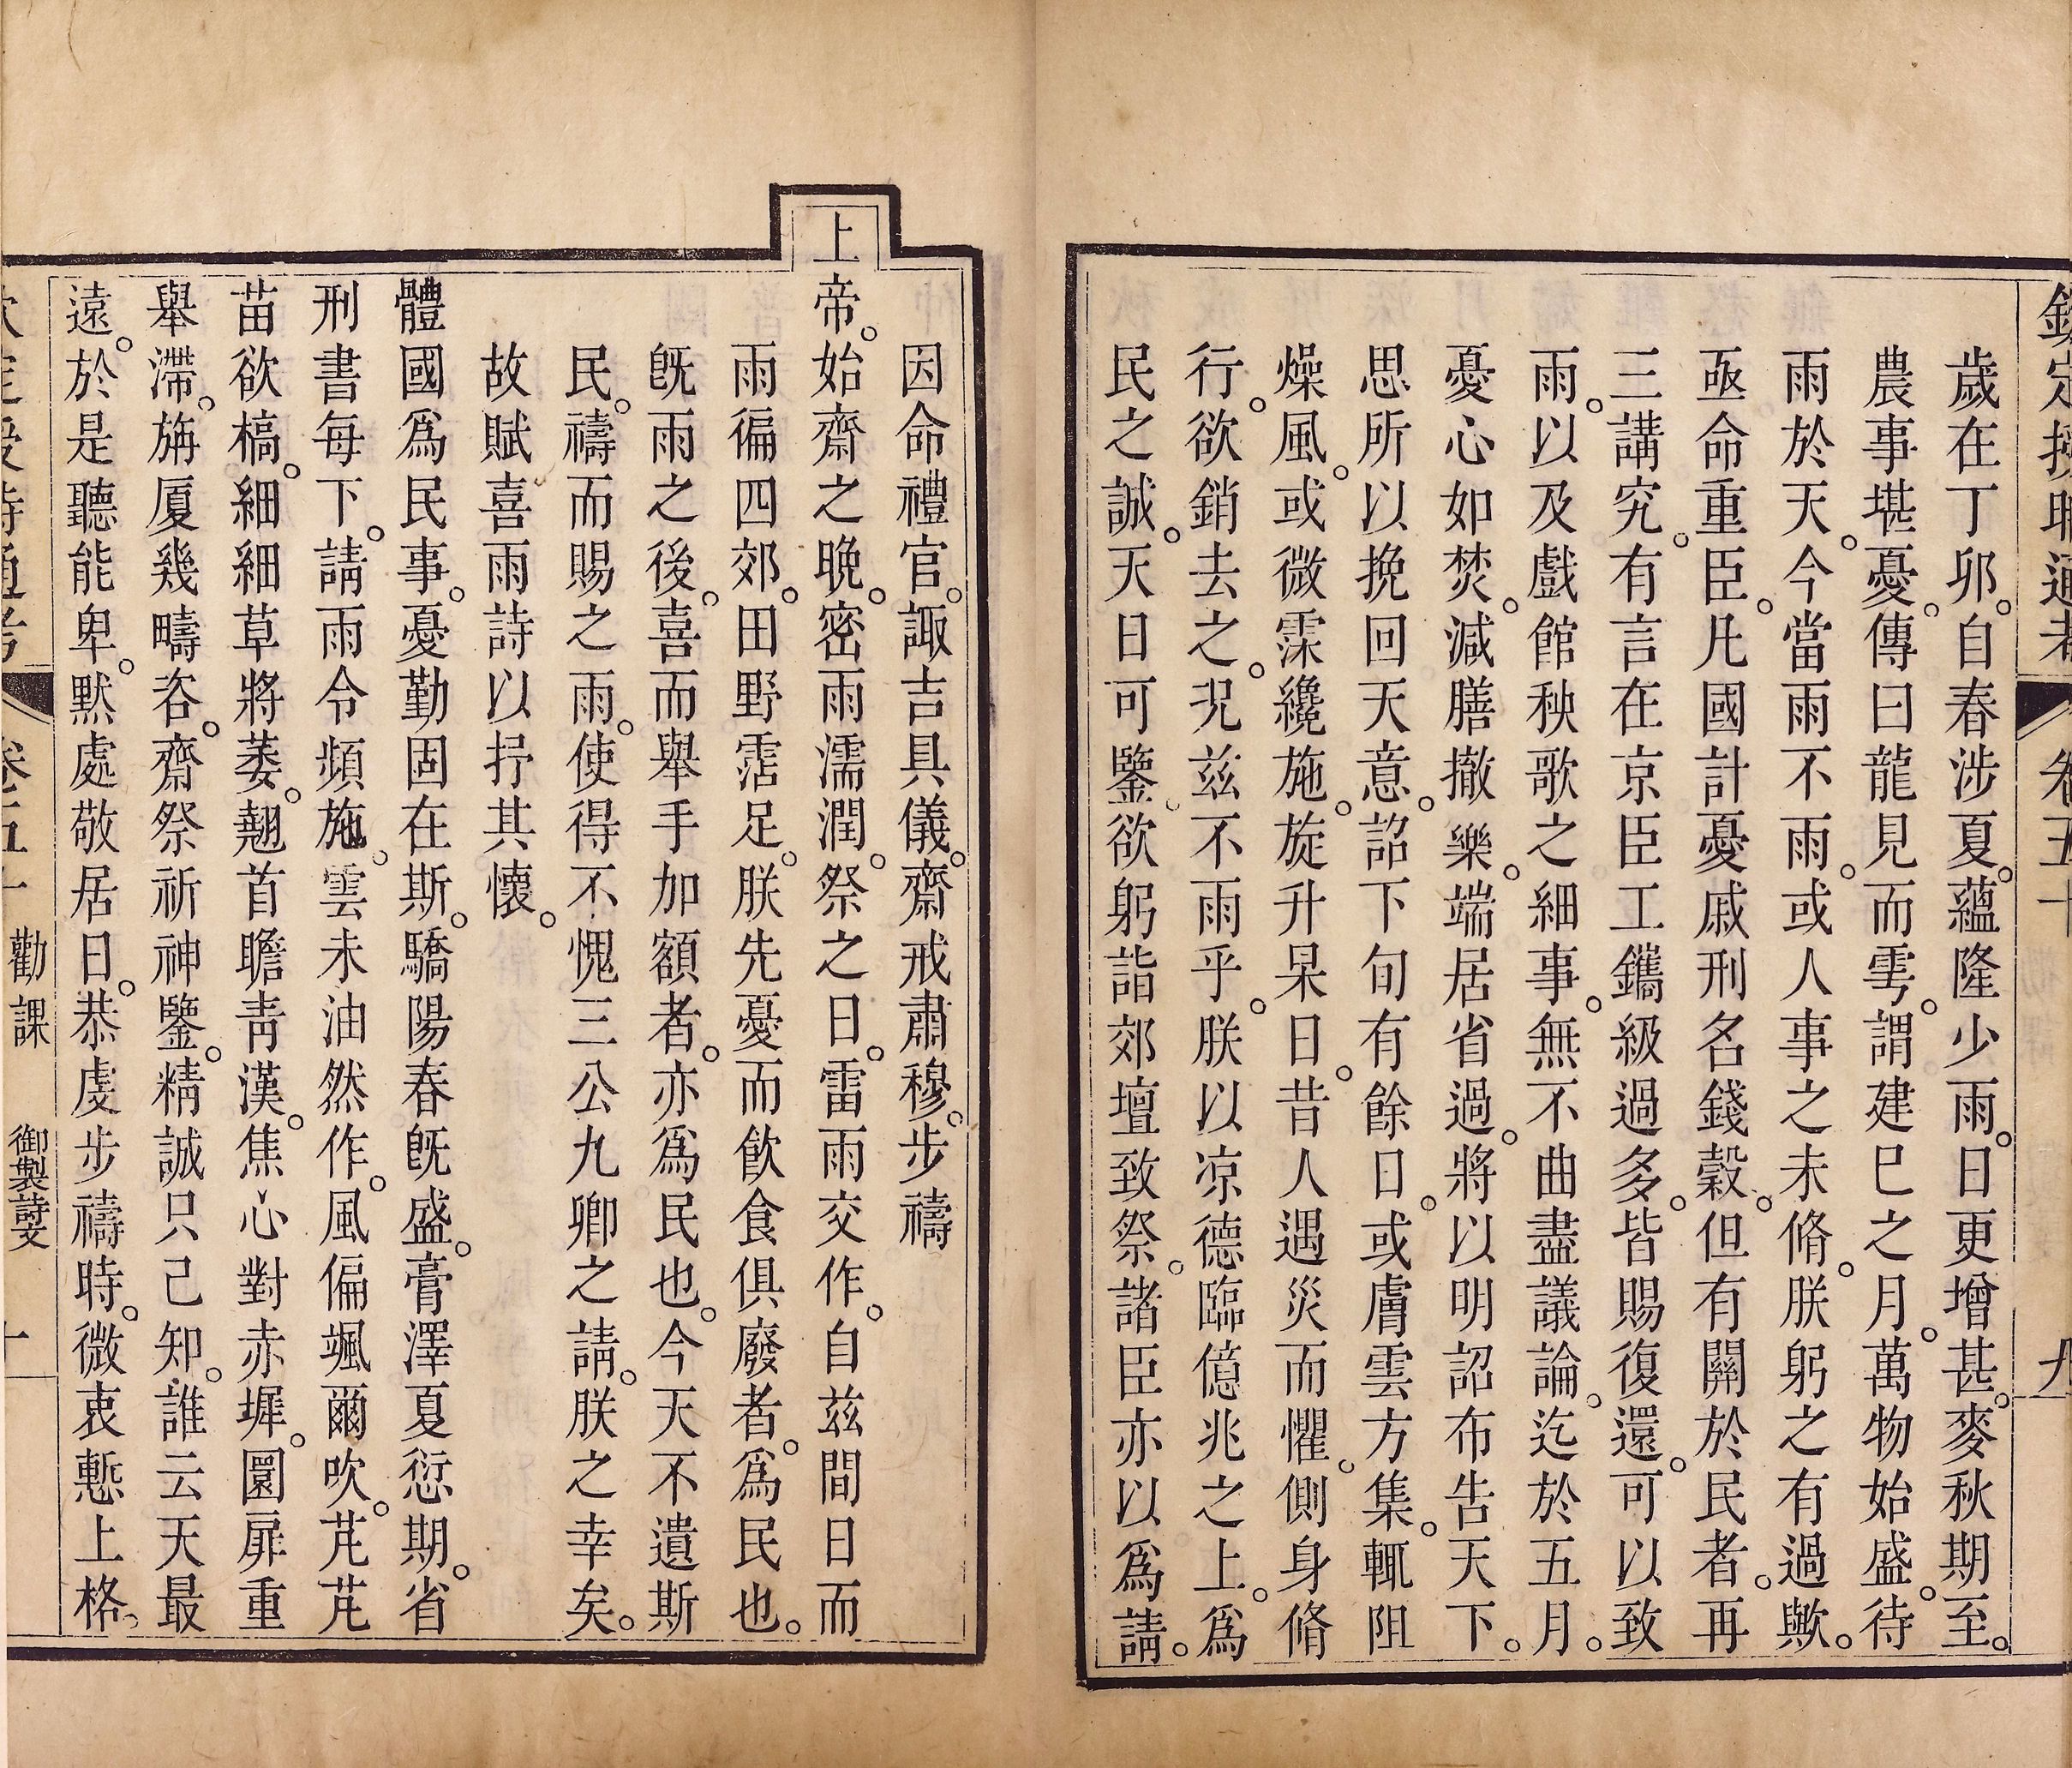 欽定授時通考 卷五十 九
歲在丁卯。自春涉夏。蘊隆少雨。日更增甚。麥秋期至。
農事堪憂。傳曰龍見而雩。謂建巳之月。萬物始盛。待
雨於天。今當雨不雨。或人事之未脩。朕躬之有過歟。
亟命重臣。凡國計憂戚刑名錢穀。但有關於民者。再
三講究。有言在京臣工鐫級過多。皆賜復還。可以致
雨。以及戲館秧歌之細事。無不曲盡議論。迄於五月。
憂心如焚。減膳撤樂。端居省過。將以明詔布告天下。
思所以挽回天意。詔下旬有餘日。或膚雲方集。輒阻
燥風。或微霂纔施。旋升杲日。昔人遇災而懼。側身脩
行。欲銷去之。況兹不雨乎。朕以凉德臨億兆之上。爲
民之誠。天日可鑒。欲躬詣郊壇致祭。諸臣亦以爲請。
因命禮官。諏吉具儀。齋戒肅穆。步禱
上帝。始齋之晚。密雨濡潤。祭之日。雷雨交作。自兹間日而
雨徧四郊。田野霑足。朕先憂而飲食俱廢者。爲民也。
旣雨之後。喜而舉手加額者。亦爲民也。今天不遺斯
民。禱而賜之雨。使得不愧三公九卿之請。朕之幸矣。
故賦喜雨詩以抒其懷。
體國爲民事。憂勤固在斯。驕陽春旣盛。膏澤夏愆期。省
刑書每下。請雨令頻施。雲未油然作。風偏颯爾吹。芃芃
苗欲槁。細細草將萎。翹首瞻靑漢。焦心對赤墀。圜扉重
舉滯。旃厦幾疇咨。齋祭祈神鑒。精誠只己知。誰云天最
遠。於是聽能卑。默處敬居日。恭虔步禱時。微衷慙上格。
欽定授時通考 卷五十 勸課 御製詩文 十